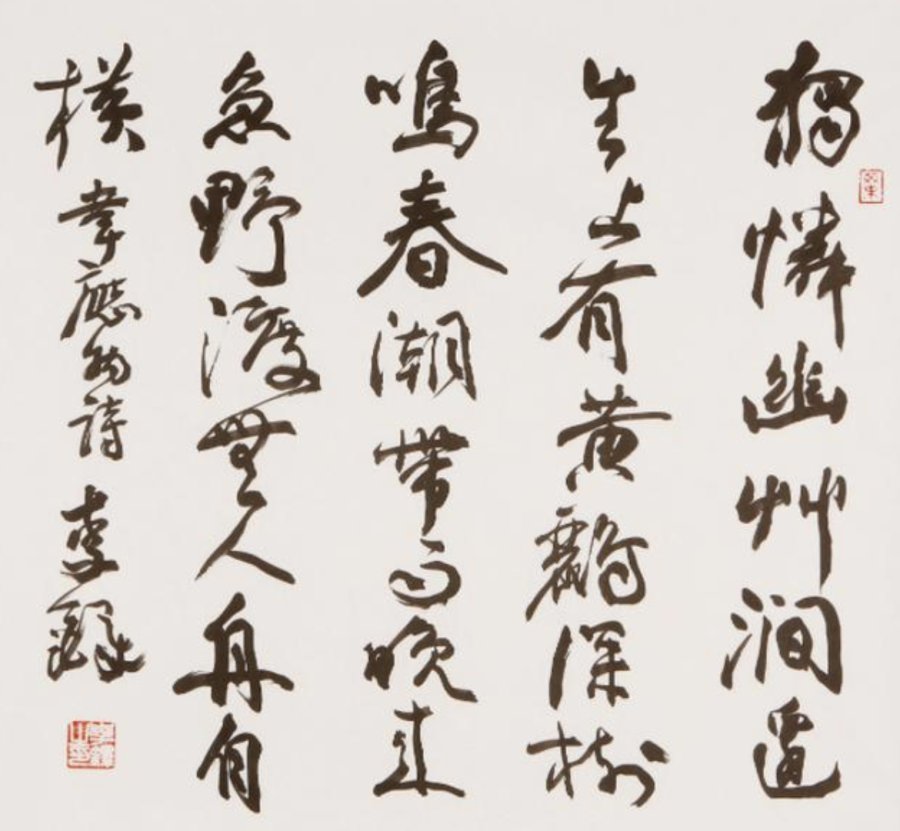 獨憐幽艸澗邊
生上有黃鸝深樹
鳴春潮帶雨晚來
急野渡無人舟自
橫 韋應物詩 李鐸